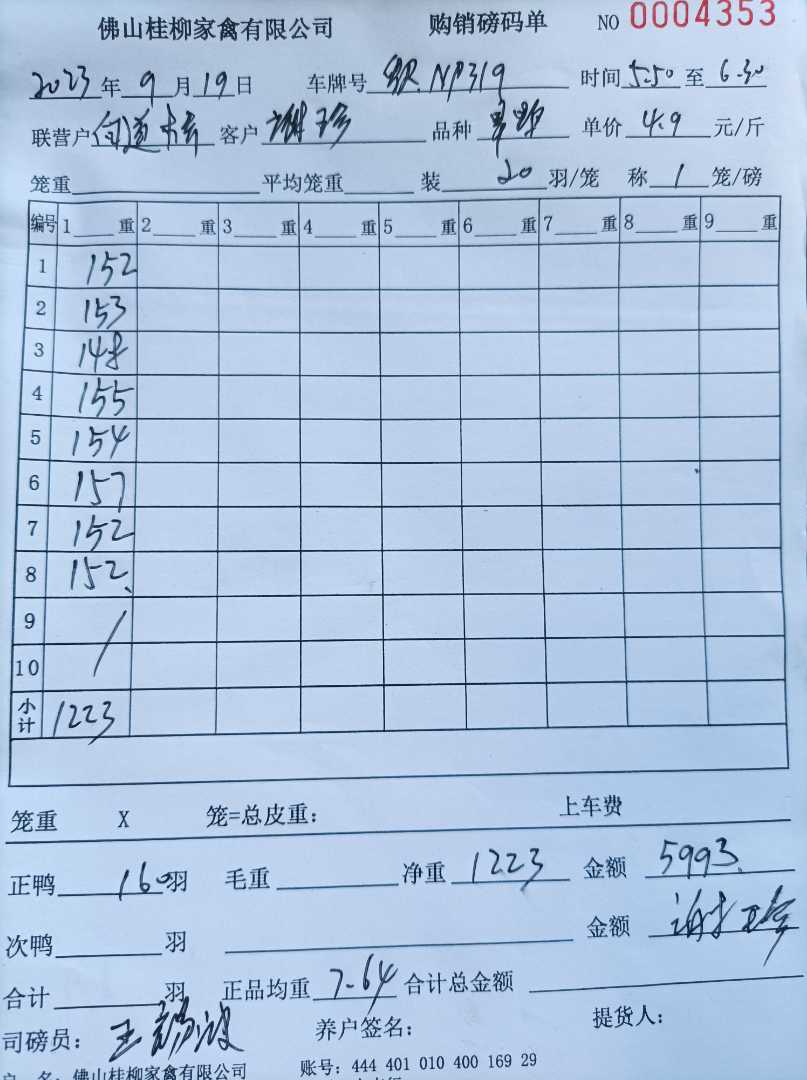 佛山桂柳家禽有限公司 购销磅码单 NO 0004353
2023年9月19日 车牌号 NP319 时间5.50至6.30
联营户 客户谢珍 品种 单价4.9元/斤
笼重 平均笼重 装20羽/笼 称1笼/磅
编号 1 重 2 重 3 重 4 重 5 重 6 重 7 重 8 重 9 重
1 152
2 153
3 148
4 155
5 154
6 157
7 152
8 152
9
10
小计 1223
笼重 X 笼=总皮重: 上车费
正鸭160羽 毛重 净重1223 金额5993
次鸭 羽 金额
合计 羽 正品均重7-64 合计总金额
司磅员: 王 波 养户签名: 提货人:
户 名: 佛山桂柳家禽有限公司 账号: 444 401 010 400 169 29